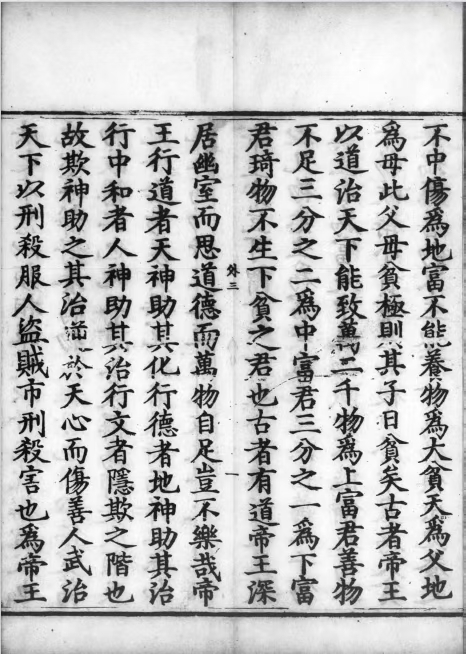 不中傷爲地富不能養物爲大貧天爲父地
爲母此父母貧極則其子日貧矣古者帝王
以道治天下能致萬二千物爲上富君善物
不足三分之二爲中富君三分之一爲下富
君琦物不生下貧之君也古者有道帝王深
外三
一
居幽室而思道德而萬物自足豈不樂哉帝
王行道者天神助其化行德者地神助其治
行中和者人神助其治行文者隱欺之階也
故欺神助之其治於天心而傷善人武治
天下以刑殺服人盜賊市刑殺害也爲帝王